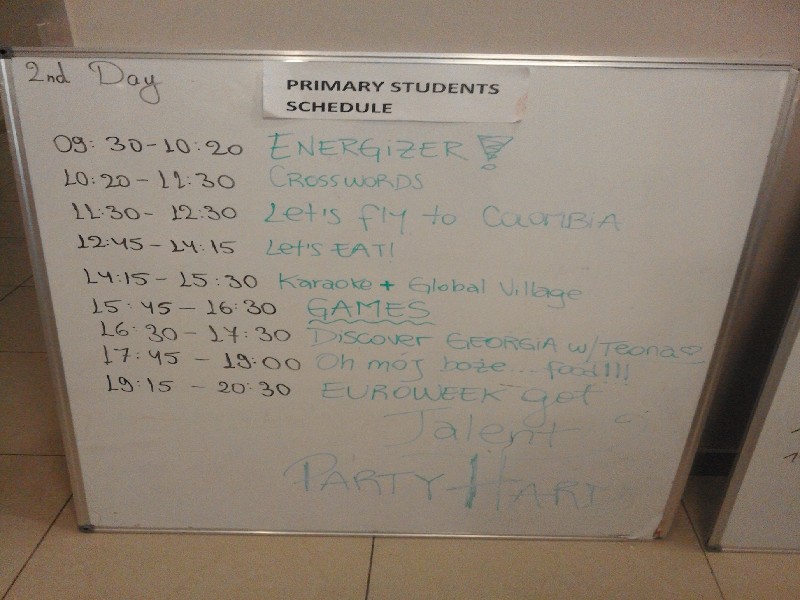 2nd Day
PRIMARY STUDENTS
SCHEDULE
09:30-10:20 ENERGIZER!
10:20-11:30 CROSSWORDS
11:30-12:30 Let's fly to COLOMBIA
12:45-14:15 Let's EAT!
14:15-15:30 Karaoke + Global Village
15:45-16:30 GAMES
16:30-17:30 Discover GEORGIA w/Teona♡
17:45-19:00 Oh mój boże... food!!!
19:15-20:30 EUROWEEK got
Talent
PARTY HARD